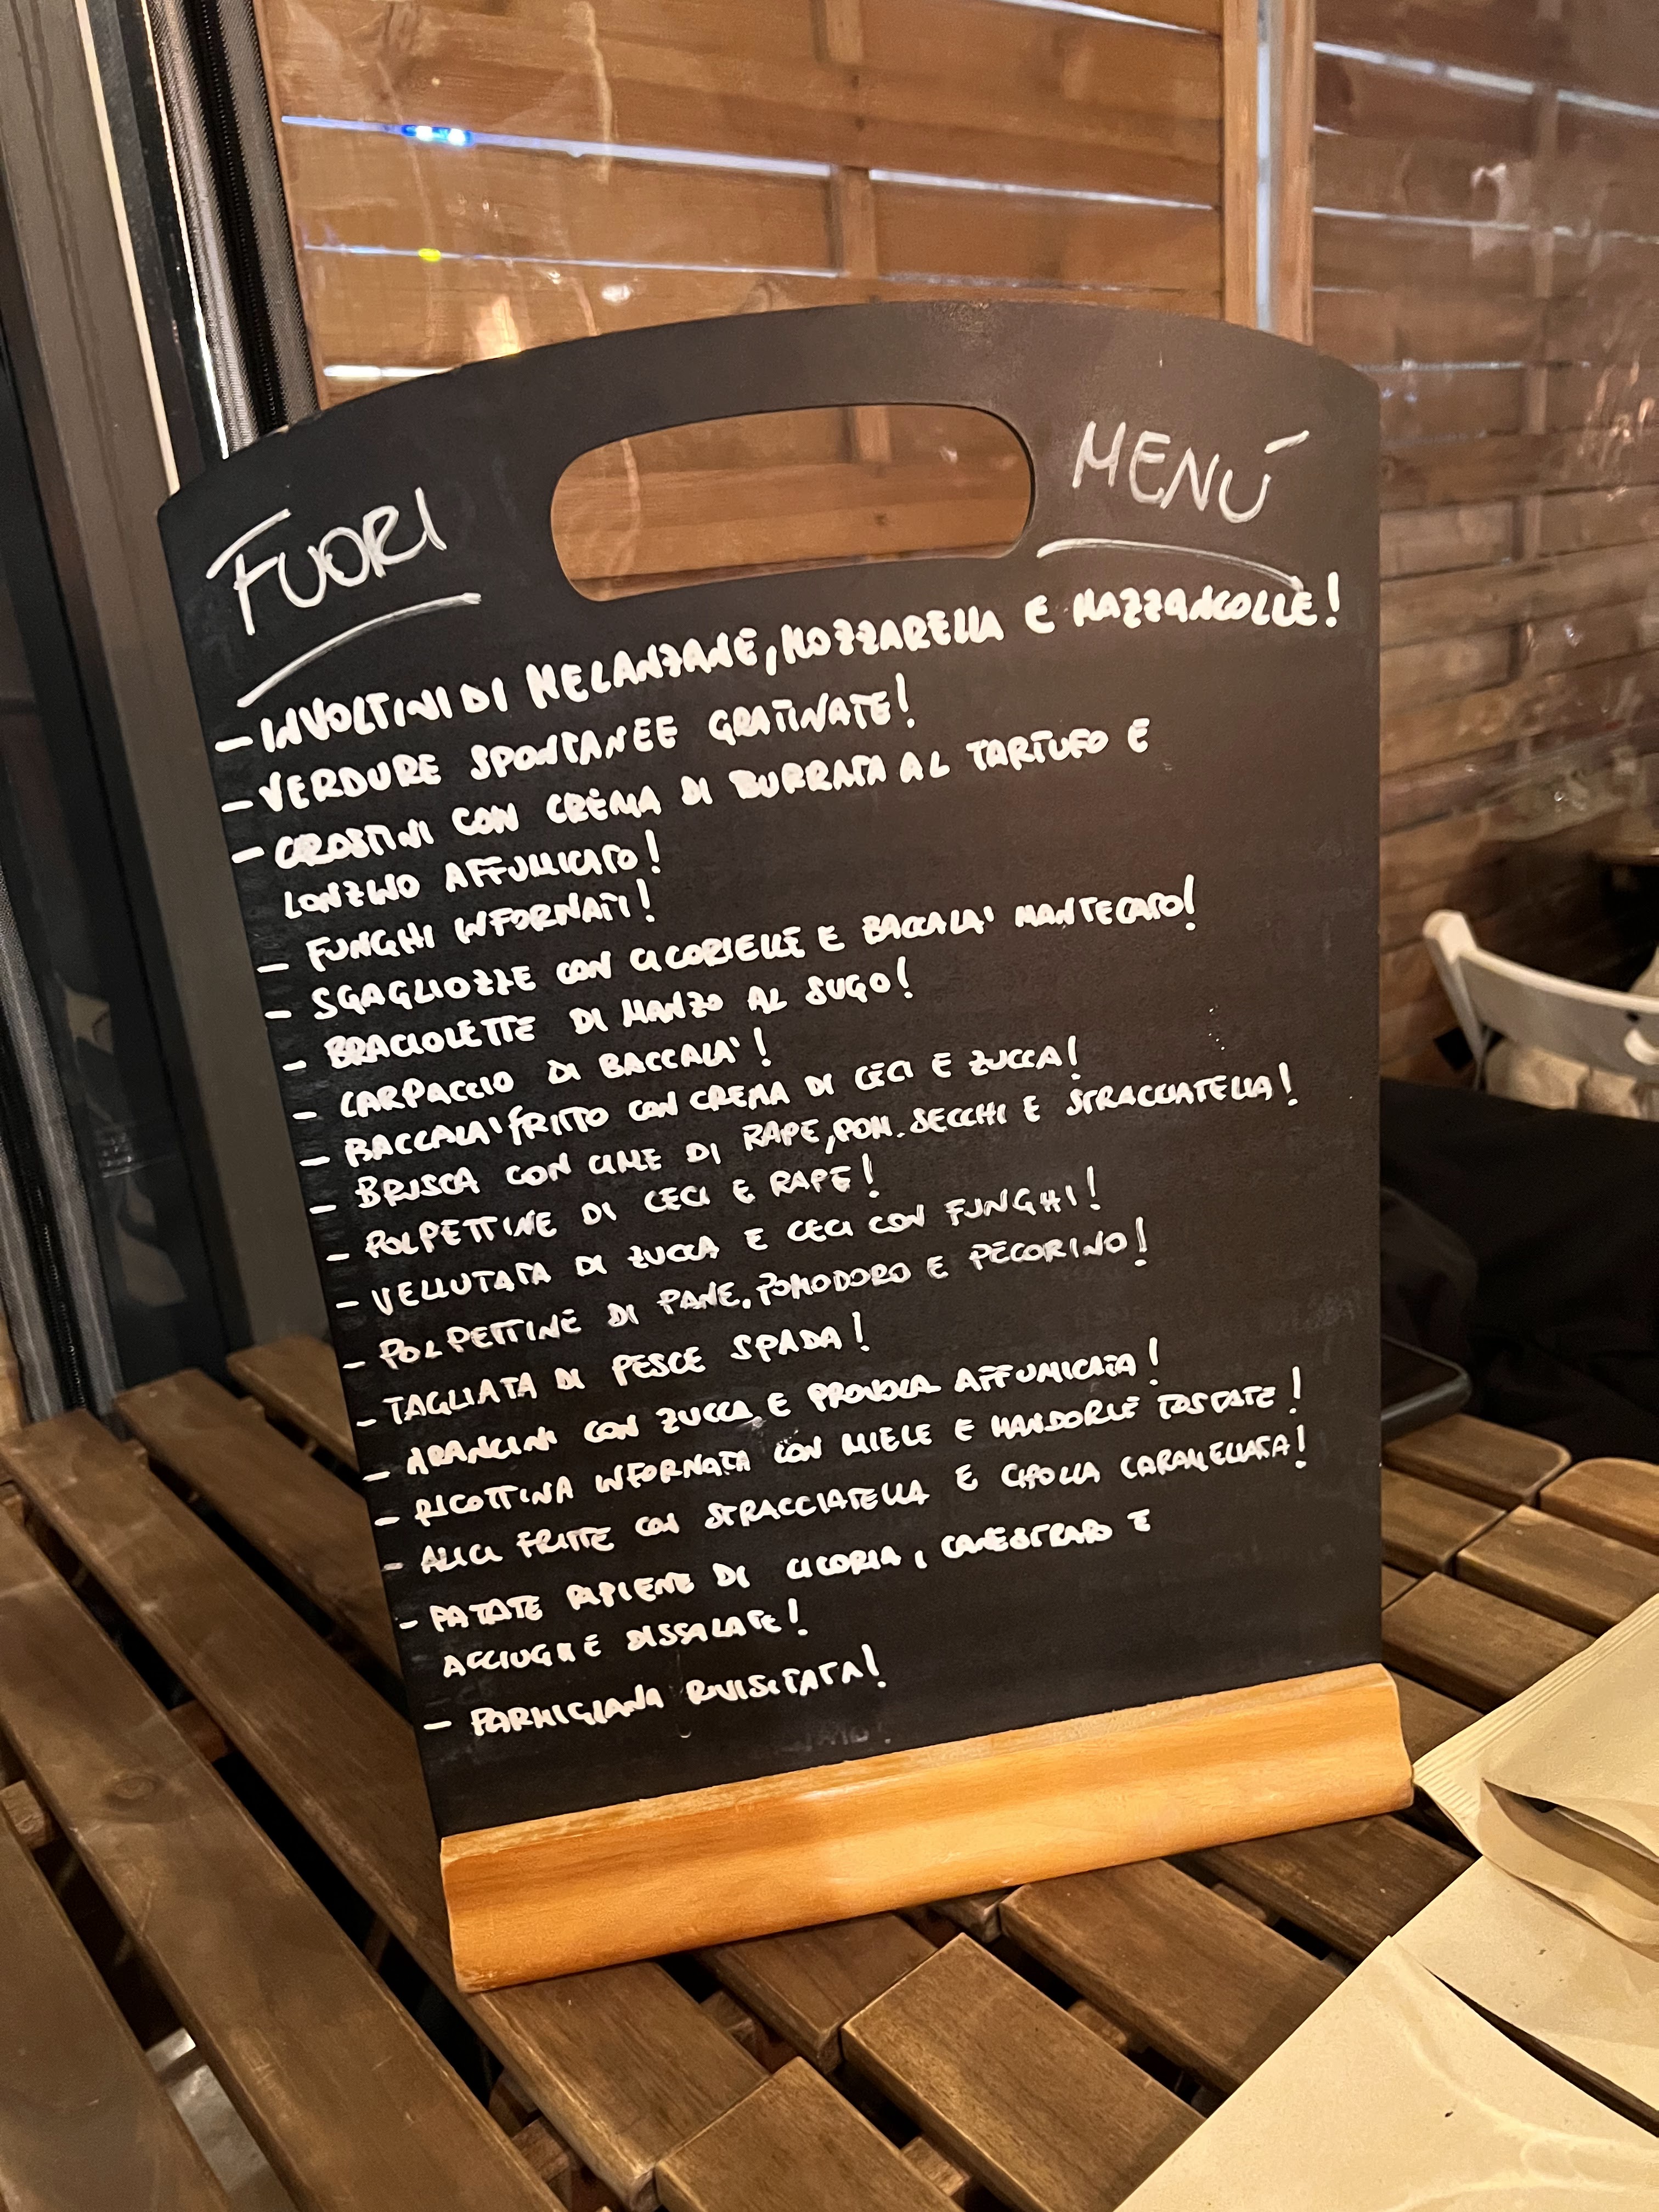 FUORI MENÚ
- INVOLTINI DI MELANZANE, MOZZARELLA E MAZZANCOLLE!
- VERDURE SPONTANEE GRATINATE!
- CROSTINI CON CREMA DI BURRATA AL TARTUFO E
LONZINO AFFUMICATO!
- FUNGHI INFORNATI!
- SGAGLIOZZE CON CICORIELLE E BACCALA' MANTECATO!
- BRACIOLETTE DI MANZO AL SUGO!
- CARPACCIO DI BACCALA'!
- BACCALA' FRITTO CON CREMA DI CECI E ZUCCA!
- BRISCA CON CIME DI RAPE, POM. SECCHI E STRACCIATELLA!
- POLPETTINE DI CECI E RAPE!
- VELLUTATA DI ZUCCA E CECI CON FUNGHI!
- POLPETTINE DI PANE, POMODORO E PECORINO!
- TAGLIATA DI PESCE SPADA!
- ARANCINI CON ZUCCA E PROVOLA AFFUMICATA!
- RICOTTINA INFORNATA CON MIELE E MANDORLE TOSTATE!
- ALICI FRITTE CON STRACCIATELLA E CIPOLLA CARAMELLATA!
- PATATE RIPIENE DI CICORIA, CANESTRATO E
ACCIUGHE DISSALATE!
- PARMIGIANA RIVISITATA!